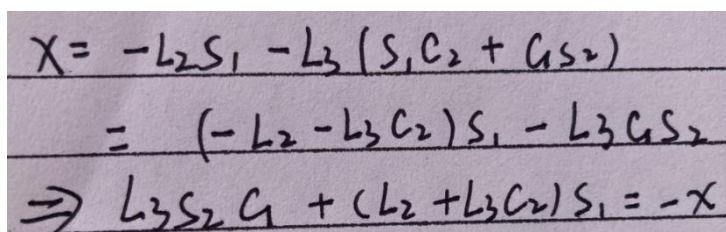 X = -L₂S₁ - L₃(S₁C₂ + C₁S₂)
= (-L₂ - L₃C₂)S₁ - L₃C₁S₂
⇒ L₃S₂C₁ + (L₂ + L₃C₂)S₁ = -X